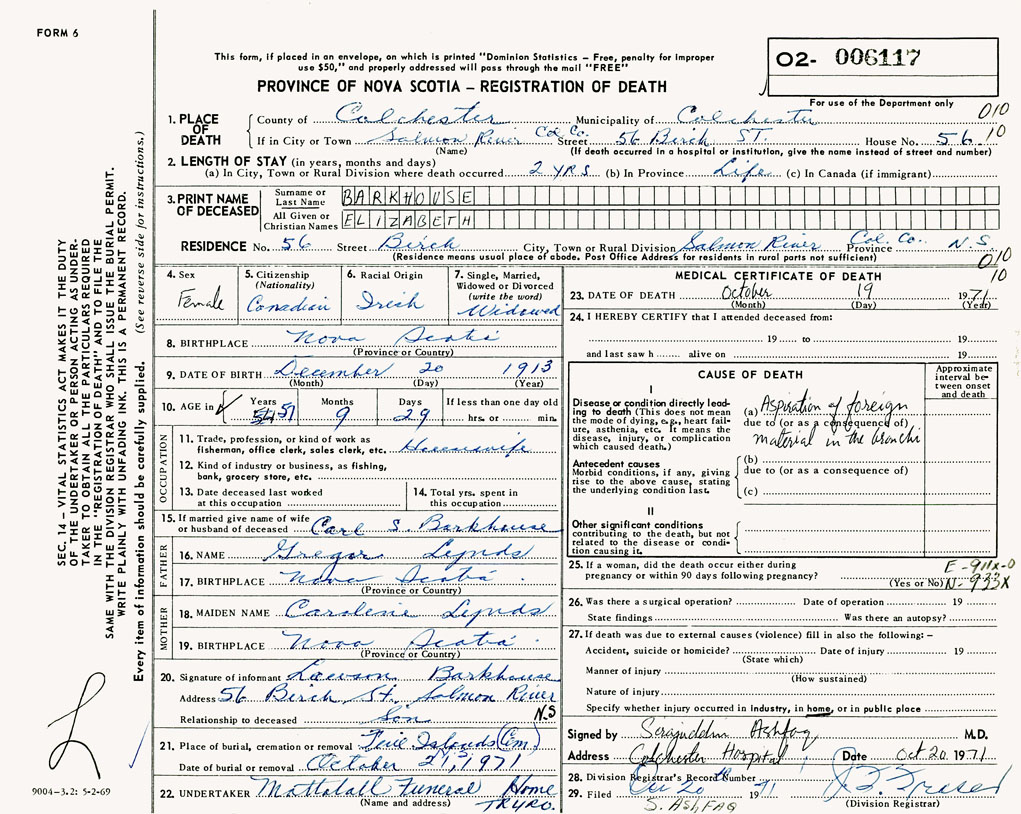 FORM 6
This form, if placed in an envelope, on which is printed "Dominion Statistics – Free, penalty for improper
use $50," and properly addressed will pass through the mail "FREE"
O2- 006117
PROVINCE OF NOVA SCOTIA – REGISTRATION OF DEATH
For use of the Department only
010
10
1. PLACE OF DEATH
County of Colchester Municipality of Colchester
If in City or Town Salmon River Col. Co. Street 56 Birch ST. House No. 56
(Name) (If death occurred in a hospital or institution, give the name instead of street and number)
2. LENGTH OF STAY (in years, months and days)
(a) In City, Town or Rural Division where death occurred 2 YRS (b) In Province Life (c) In Canada (if immigrant)
3. PRINT NAME OF DECEASED
Surname or Last Name BARKHOUSE
All Given or Christian Names ELIZABETH
RESIDENCE No. 56 Street Birch City, Town or Rural Division Salmon River Col. Co. Province N.S.
(Residence means usual place of abode. Post Office Address for residents in rural parts not sufficient)
010
10
4. Sex Female
5. Citizenship (Nationality) Canadian
6. Racial Origin Irish
7. Single, Married, Widowed or Divorced (write the word) Widowed
8. BIRTHPLACE Nova Scotia
(Province or Country)
9. DATE OF BIRTH December 20 1913
(Month) (Day) (Year)
10. AGE in Years 57 Months 9 Days 29 If less than one day old hrs. or min.
OCCUPATION
11. Trade, profession, or kind of work as
fisherman, office clerk, sales clerk, etc. Housewife
12. Kind of industry or business, as fishing,
bank, grocery store, etc.
13. Date deceased last worked
at this occupation
14. Total yrs. spent in
this occupation
15. If married give name of wife
or husband of deceased Carl S. Barkhouse
FATHER
16. NAME Gregor Lynds
17. BIRTHPLACE Nova Scotia
(Province or Country)
MOTHER
18. MAIDEN NAME Caroline Lynds
19. BIRTHPLACE Nova Scotia
(Province or Country)
20. Signature of informant Lawson Barkhouse
Address 56 Birch St. Salmon River
N.S
Relationship to deceased Son
21. Place of burial, cremation or removal Five Islands (Cem)
Date of burial or removal October 21, 1971
22. UNDERTAKER Mattatall Funeral Home
(Name and address) TRURO.
MEDICAL CERTIFICATE OF DEATH
23. DATE OF DEATH October 19 1971
(Month) (Day) (Year)
24. I HEREBY CERTIFY that I attended deceased from:
19 to 19
and last saw h alive on 19
CAUSE OF DEATH
Approximate interval between onset and death
I
Disease or condition directly leading to death (This does not
mean the mode of dying, e.g., heart failure, asthenia, etc. It means the
disease, injury, or complication
which caused death.)
(a) Aspiration of foreign
due to (or as a consequence of)
material in the bronchi
Antecedent causes
Morbid conditions, if any, giving
rise to the above cause, stating
the underlying condition last.
(b)
due to (or as a consequence of)
(c)
II
Other significant conditions
contributing to the death, but not
related to the disease or condition causing it.
25. If a woman, did the death occur either during
pregnancy or within 90 days following pregnancy?
(Yes or No)
E-911X-0
N-933X
26. Was there a surgical operation? Date of operation 19
State findings Was there an autopsy?
27. If death was due to external causes (violence) fill in also the following: –
Accident, suicide or homicide? Date of injury 19
(State which)
Manner of injury
(How sustained)
Nature of injury
Specify whether injury occurred in industry, in home, or in public place
Signed by Serajuddin Ashfaq M.D.
Address Colchester Hospital Date Oct 20 1971
28. Division Registrar's Record Number
29. Filed Oct 20 1971
S. ASHFAQ
(Division Registrar)
SEC. 14 – VITAL STATISTICS ACT MAKES IT THE DUTY
OF THE UNDERTAKER OR PERSON ACTING AS UNDER-
TAKER TO OBTAIN ALL THE PARTICULARS REQUIRED
IN THE "REGISTRATION OF DEATH" AND TO FILE THE
SAME WITH THE DIVISION REGISTRAR WHO SHALL ISSUE THE BURIAL PERMIT.
WRITE PLAINLY WITH UNFADING INK. THIS IS A PERMANENT RECORD.
Every item of information should be carefully supplied. (See reverse side for instructions.)
9004-3.2: 5-2-69